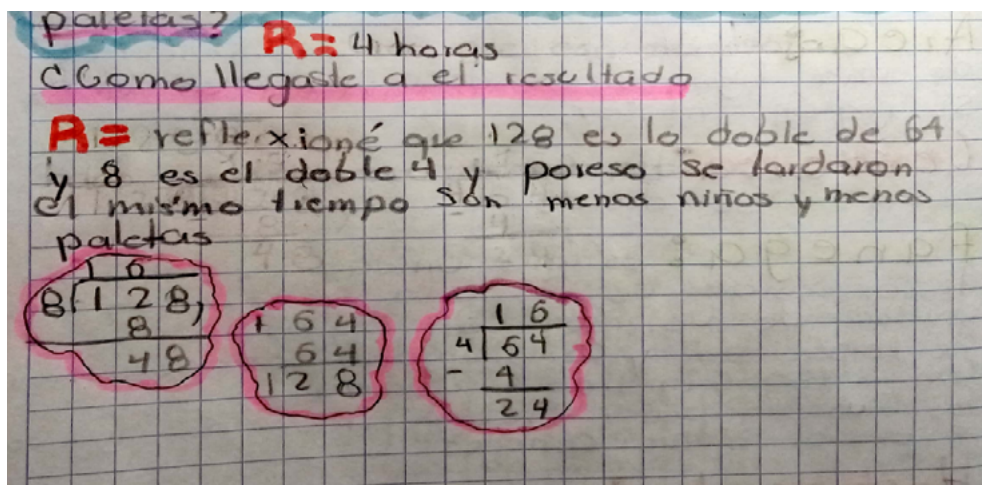 paletas?
R= 4 horas
¿Como llegaste a el resultado
R= reflexioné que 128 es lo doble de 64
y 8 es el doble 4 y poreso se tardaron
el mismo tiempo son menos niños y menos
paletas
16
8 128
8
48
1 64
64
128
16
4 64
- 4
24